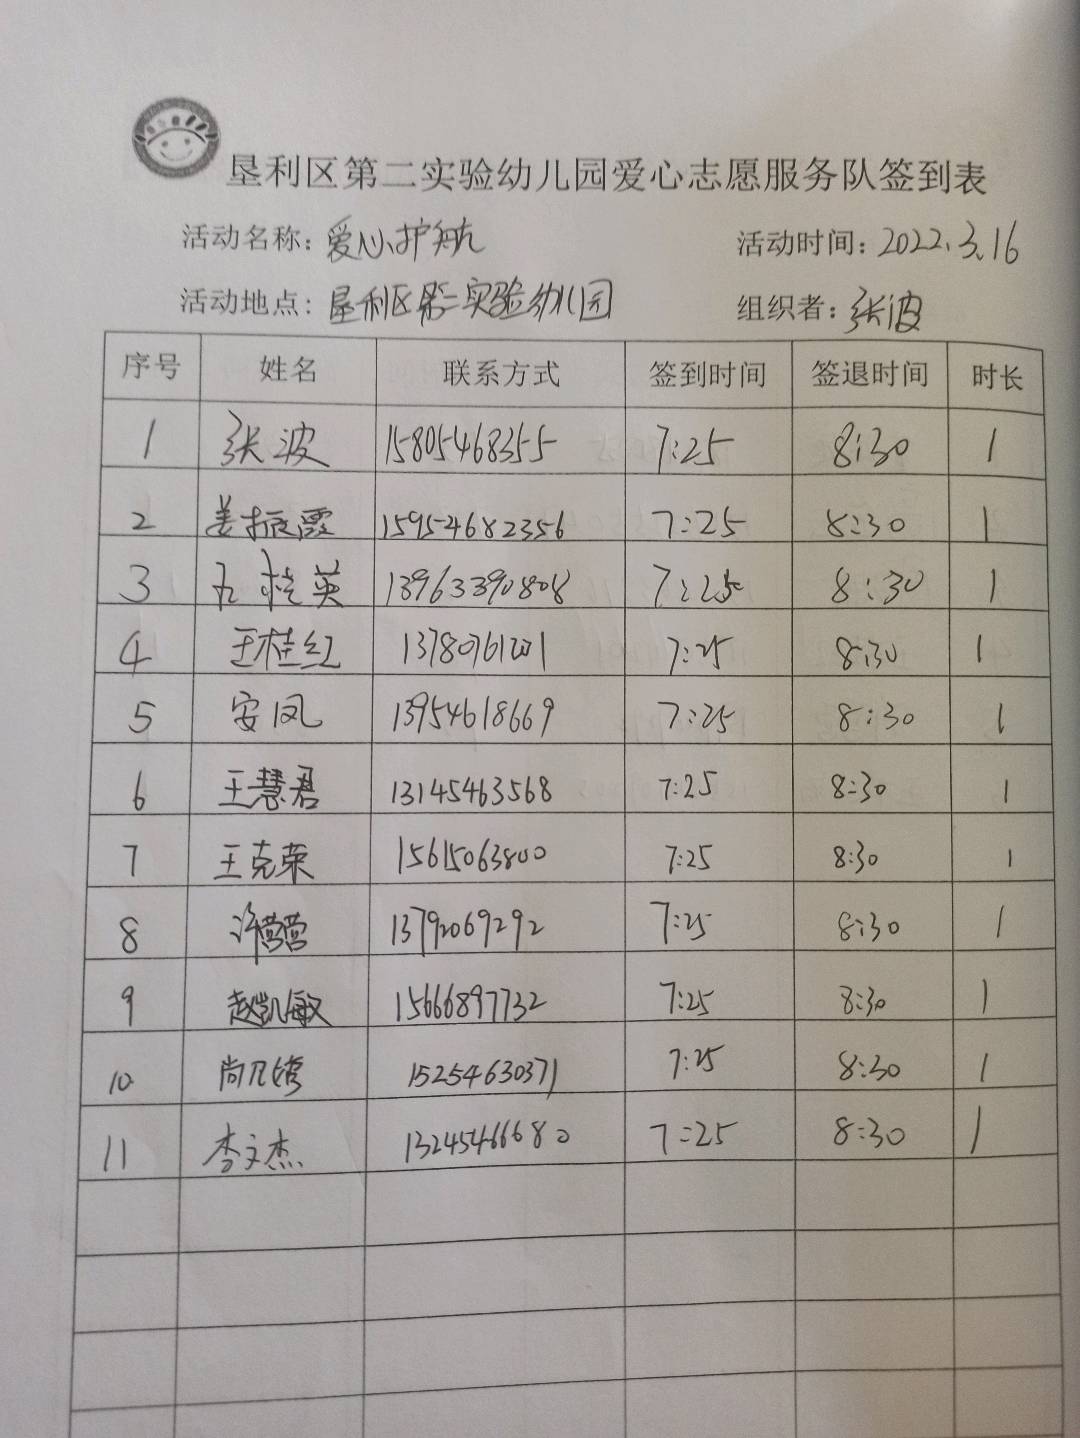 垦利区第二实验幼儿园爱心志愿服务队签到表
活动名称：爱心护航 活动时间：2022.3.16
活动地点：垦利区第二实验幼儿园 组织者：张波
序号 姓名 联系方式 签到时间 签退时间 时长
1 张波 15805468355 7:25 8:30 1
2 姜振霞 15954682356 7:25 8:30 1
3 桂英 13963390808 7:25 8:30 1
4 王桂红 7:25 8:30 1
5 安凤 13954618669 7:25 8:30 1
6 王慧君 13145463568 7:25 8:30 1
7 王克荣 15615063800 7:25 8:30 1
8 许营营 13792069292 7:25 8:30 1
9 赵凯敏 15666897732 7:25 8:30 1
10 尚 15254630371 7:25 8:30 1
11 李文杰 13245466680 7:25 8:30 1